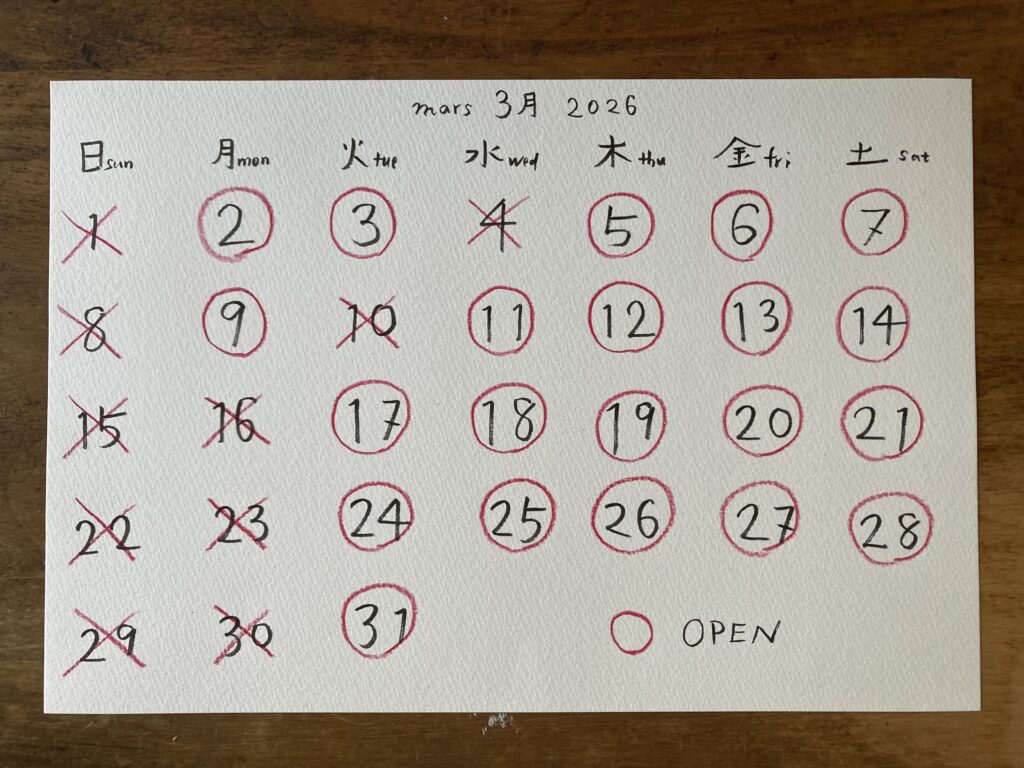 mars 3月 2026
日sun 月mon 火tue 水wed 木thu 金fri 土sat
1 2 3 4 5 6 7
8 9 10 11 12 13 14
15 16 17 18 19 20 21
22 23 24 25 26 27 28
29 30 31 OPEN